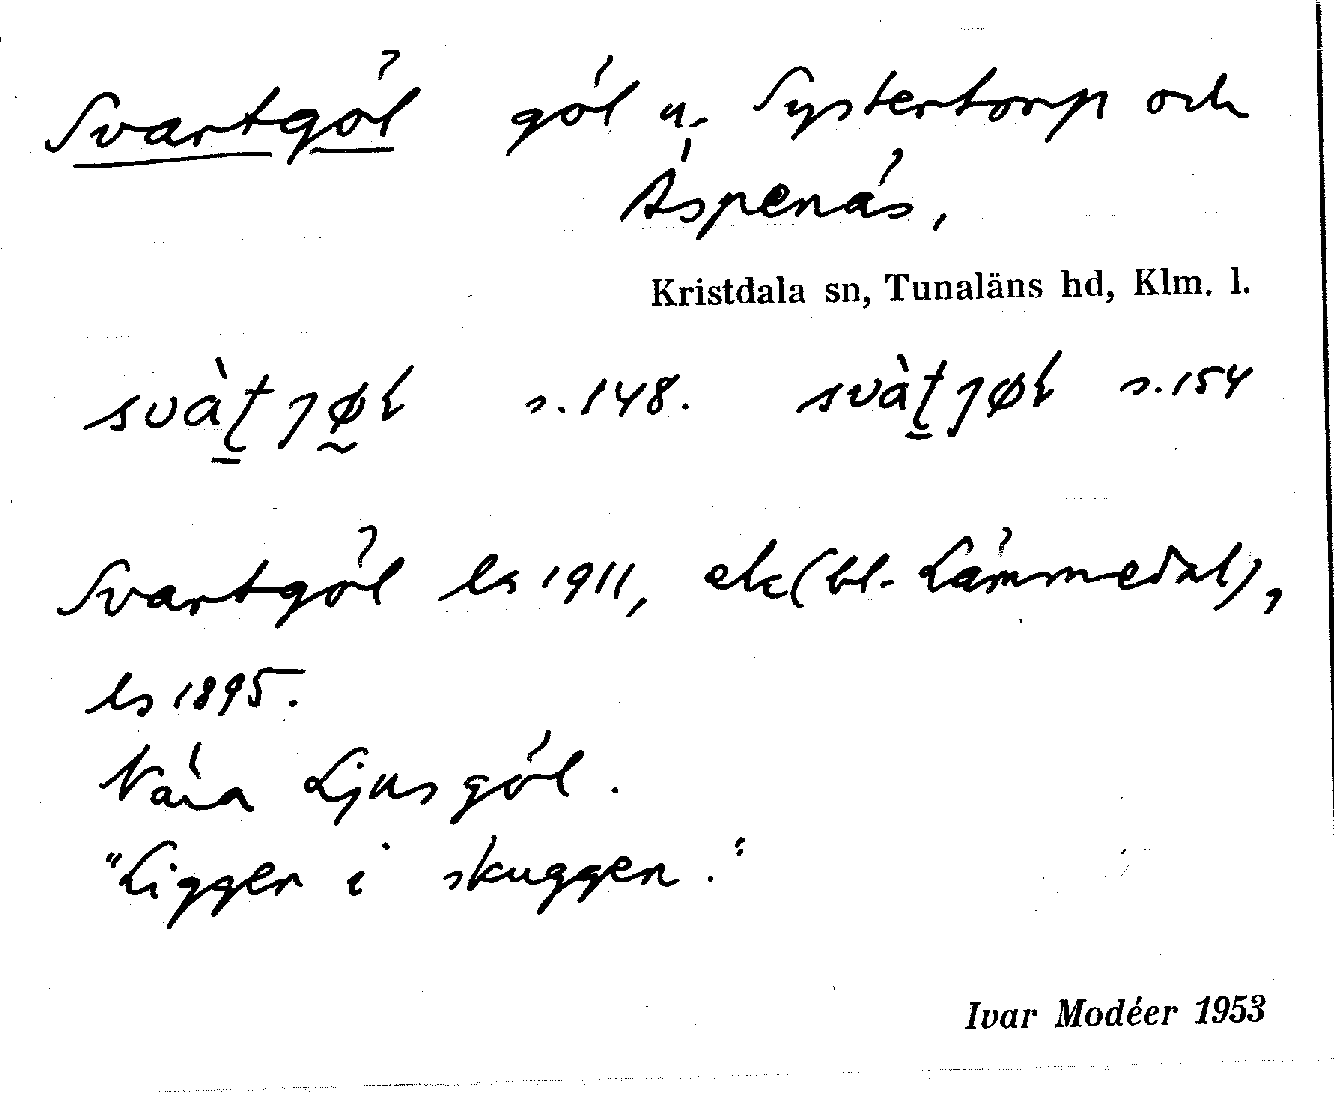 Svartgöl göl u. Systertorp och
Äspenäs,
Kristdala sn, Tunaläns hd, Klm. l.
svàṭjøl s.148. svàṭjøl s.154
Svartgöl ls 1911, ek (bl. Lämmedal),
ls 1895.
Nära Ljusgöl.
"Ligger i skuggen."
Ivar Modéer 1953